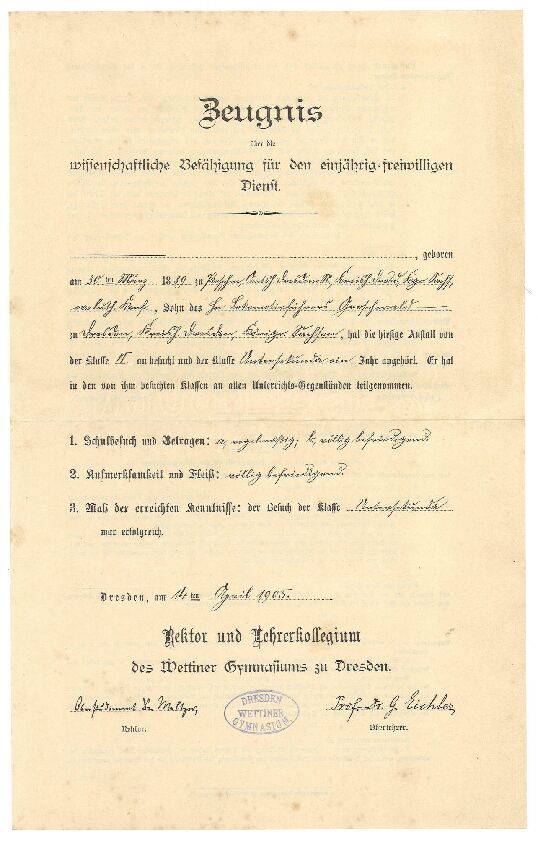 Zeugnis
über die
wissenschaftliche Befähigung für den einjährig-freiwilligen
Dienst.
, geboren
am 30ten März 1889 zu
ev. luth. Konf., Sohn des H. Lokomotivführers Grosschewald
zu Dresden, Kreish. Dresden, Königr. Sachsen, hat die hiesige Anstalt von
der Klasse VI an besucht und der Klasse Untersekunda ein Jahr angehört. Er hat
in den von ihm besuchten Klassen an allen Unterrichts-Gegenständen teilgenommen.
1. Schulbesuch und Betragen: a, regelmäßig; b, völlig befriedigend.
2. Aufmerksamkeit und Fleiß: völlig befriedigend.
3. Maß der erreichten Kenntnisse: der Besuch der Klasse Untersekunda
war erfolgreich.
Dresden, am 14ten April 1905.
Rektor und Lehrerkollegium
des Wettiner Gymnasiums zu Dresden.
Meltzer, Prof. Dr. G. Eichler,
Rektor. Ordinarius.
DRESDEN
WETTINER
GYMNASIUM